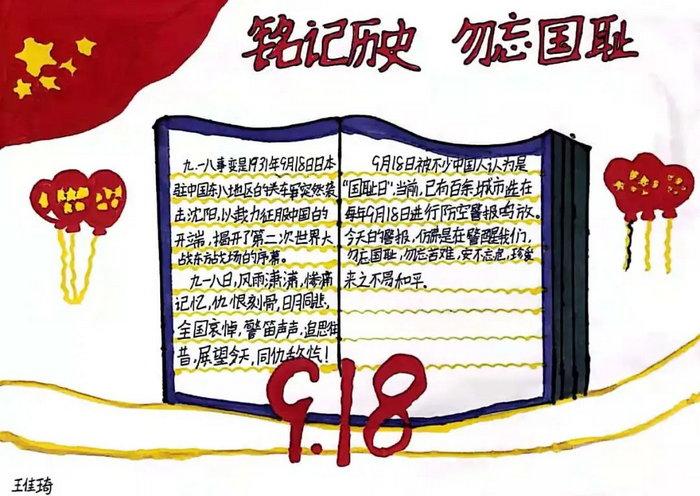 铭记历史 勿忘国耻
九一八事变是1931年9月18日日本
驻中国东北地区的关东军突然袭
击沈阳,以武力征服中国的
开端,揭开了第二次世界大
战东方战场的序幕。
九一八日,风雨潇潇,惨痛
记忆,仇恨刻骨,日月同悲,
全国哀悼,警笛声声,追思往
昔,展望今天,同仇敌忾!
9月18日被不少中国人认为是
"国耻日",当前,已有百余城市选在
每年9月18日进行防空警报鸣放。
今天的警报,仍是在警醒我们,
勿忘国耻,勿忘苦难,安不忘危,珍爱
来之不易和平。
9.18
王佳琦